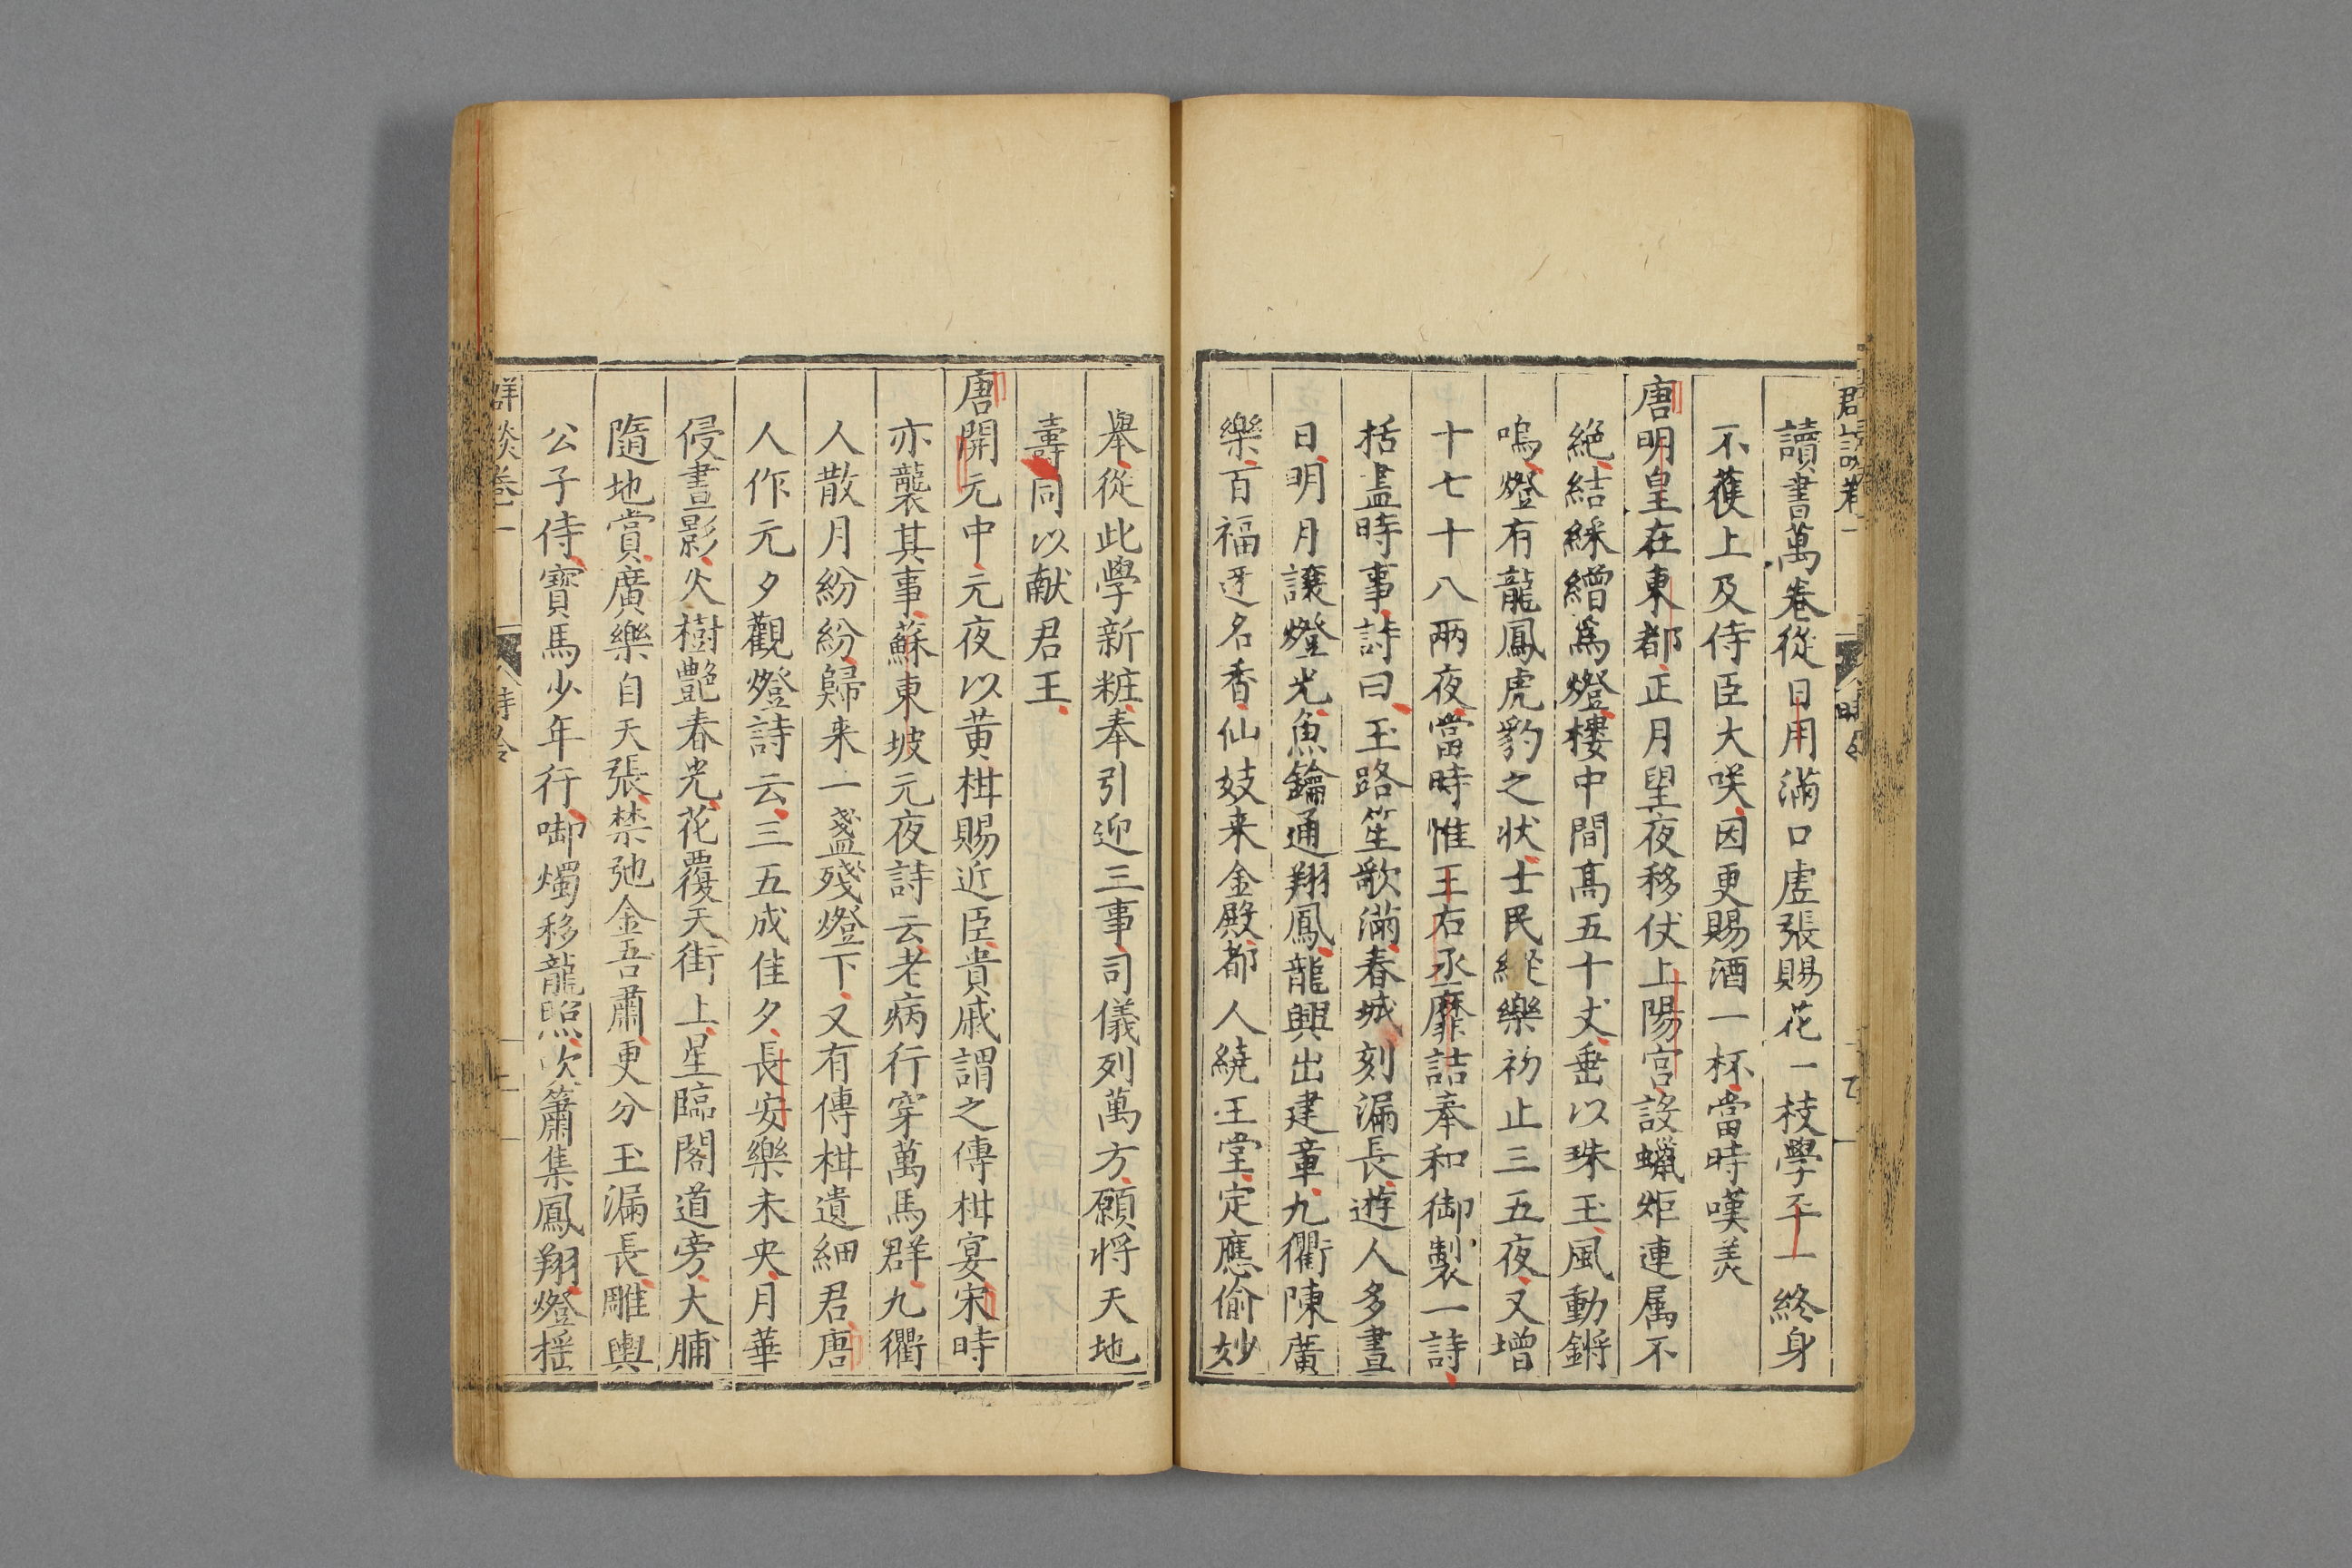 讀書萬卷從日用滿口虛張賜花一枝學平一終身
不蒦上及侍臣大咲因更賜酒一杯當時嘆羙
唐明皇在東都正月望夜移仗上陽宮設蠟炬連属不
絶結綵繒爲燈樓中間高五十丈垂以珠玉風動鏘
嗚燈有龍鳳虎豹之状士民縱樂初止三五夜又增
十七十八兩夜當時惟王右丞靡詰奉和御製一詩
括盡時事詩曰玉路笙歌滿春城刻漏長遊人多晝
日明月讓燈光魚鑰通翔鳳龍興出建章九衢陳廣
樂百福迓名香仙妓来金殿都人繞王堂定應偷妙
舉從此學新粧奉引迎三事司儀列萬方願将天地
壽同以献君王
唐開元中元夜以黄柑賜近臣貴戚謂之傳柑宴宋時
亦襲其事蘇東坡元夜詩云老病行穿萬馬群九衢
人散月紛紛歸来一盞殘燈下又有傳柑遺細君唐
人作元夕觀燈詩云三五成佳夕長安樂未央月華
侵晝影火樹艷春光花覆天街上星臨閣道旁大脯
隨地賞廣樂自天張禁弛金吾肅更分玉漏長雕輿
公子侍寶馬少年行啣燭移龍照吹簫集鳳翔燈揺
群談卷一